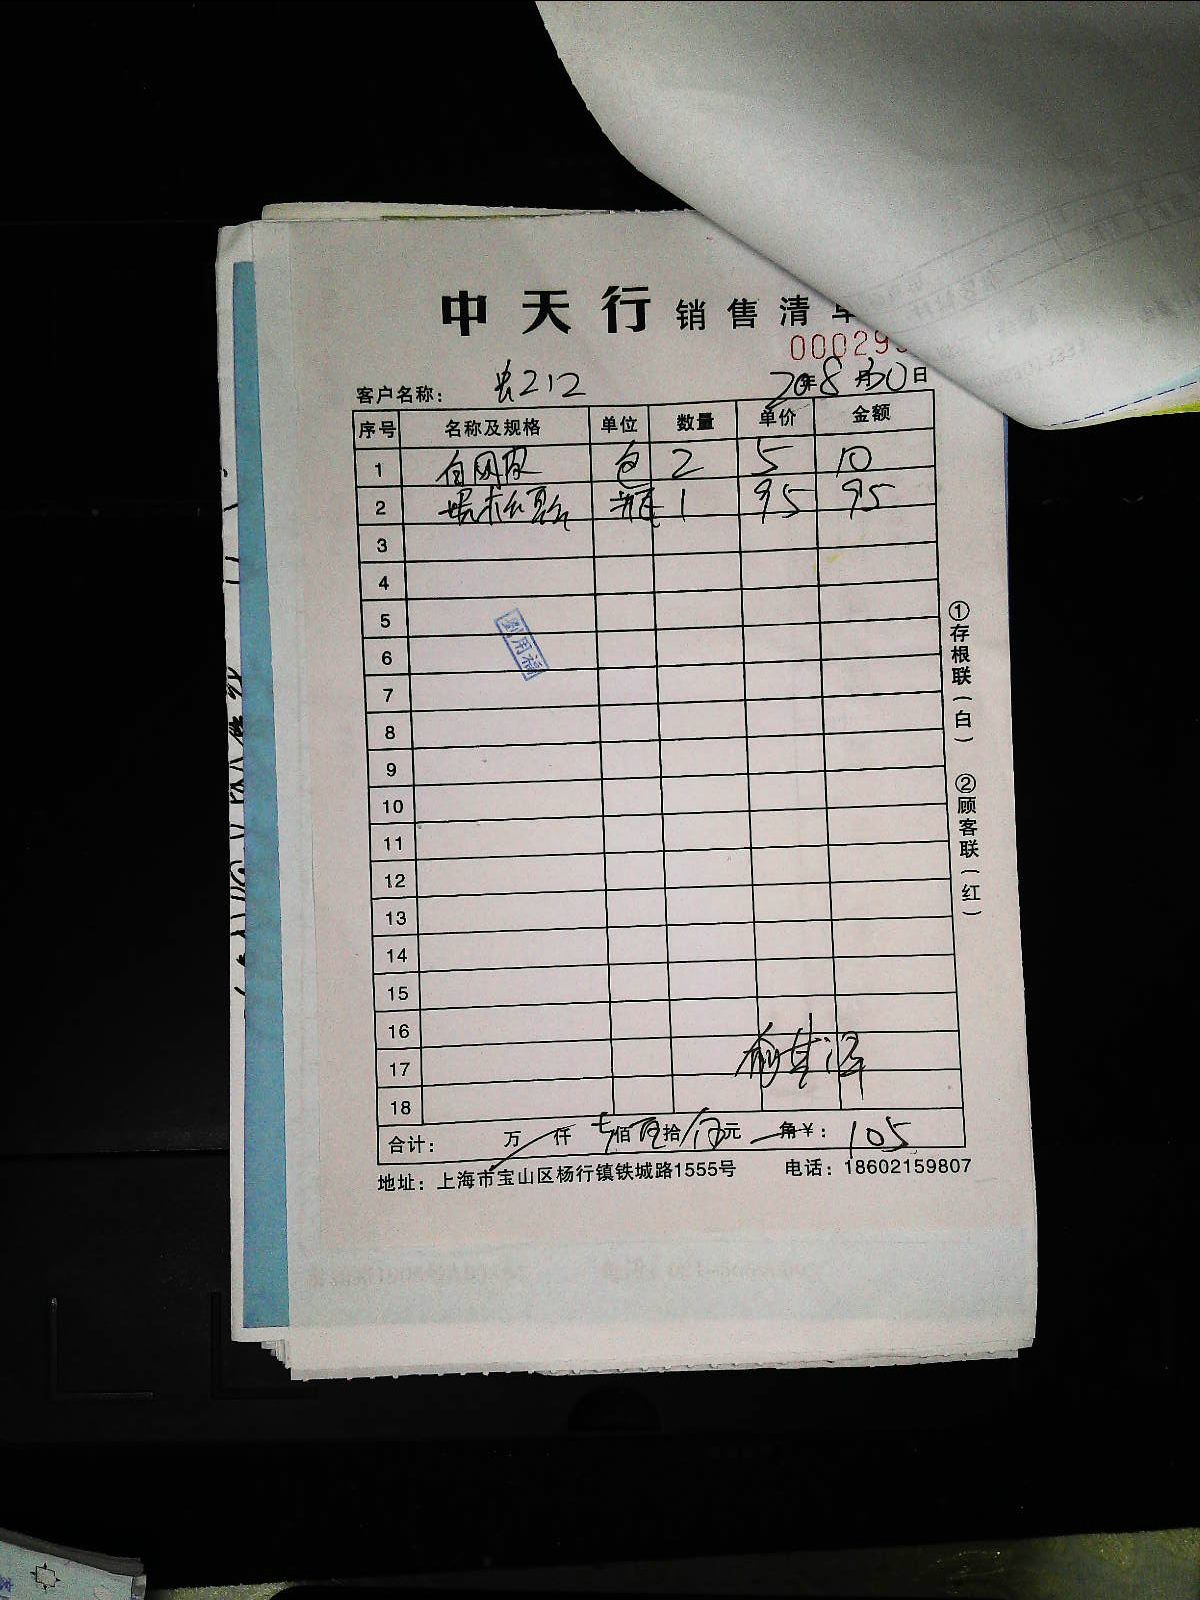 中天行 销售清单
00029
客户名称： 212 20年8月30日
序号 名称及规格 单位 数量 单价 金额
1 白网 包 2 5 10
2 瓶 1 95 95
3
4
5
6
7
8
9
10
11
12
13
14
15
16
17
18
合计： 万 仟 佰 拾 元 角 ¥： 105
地址：上海市宝山区杨行镇铁城路1555号 电话：18602159807
①存根联（白） ②顾客联（红）